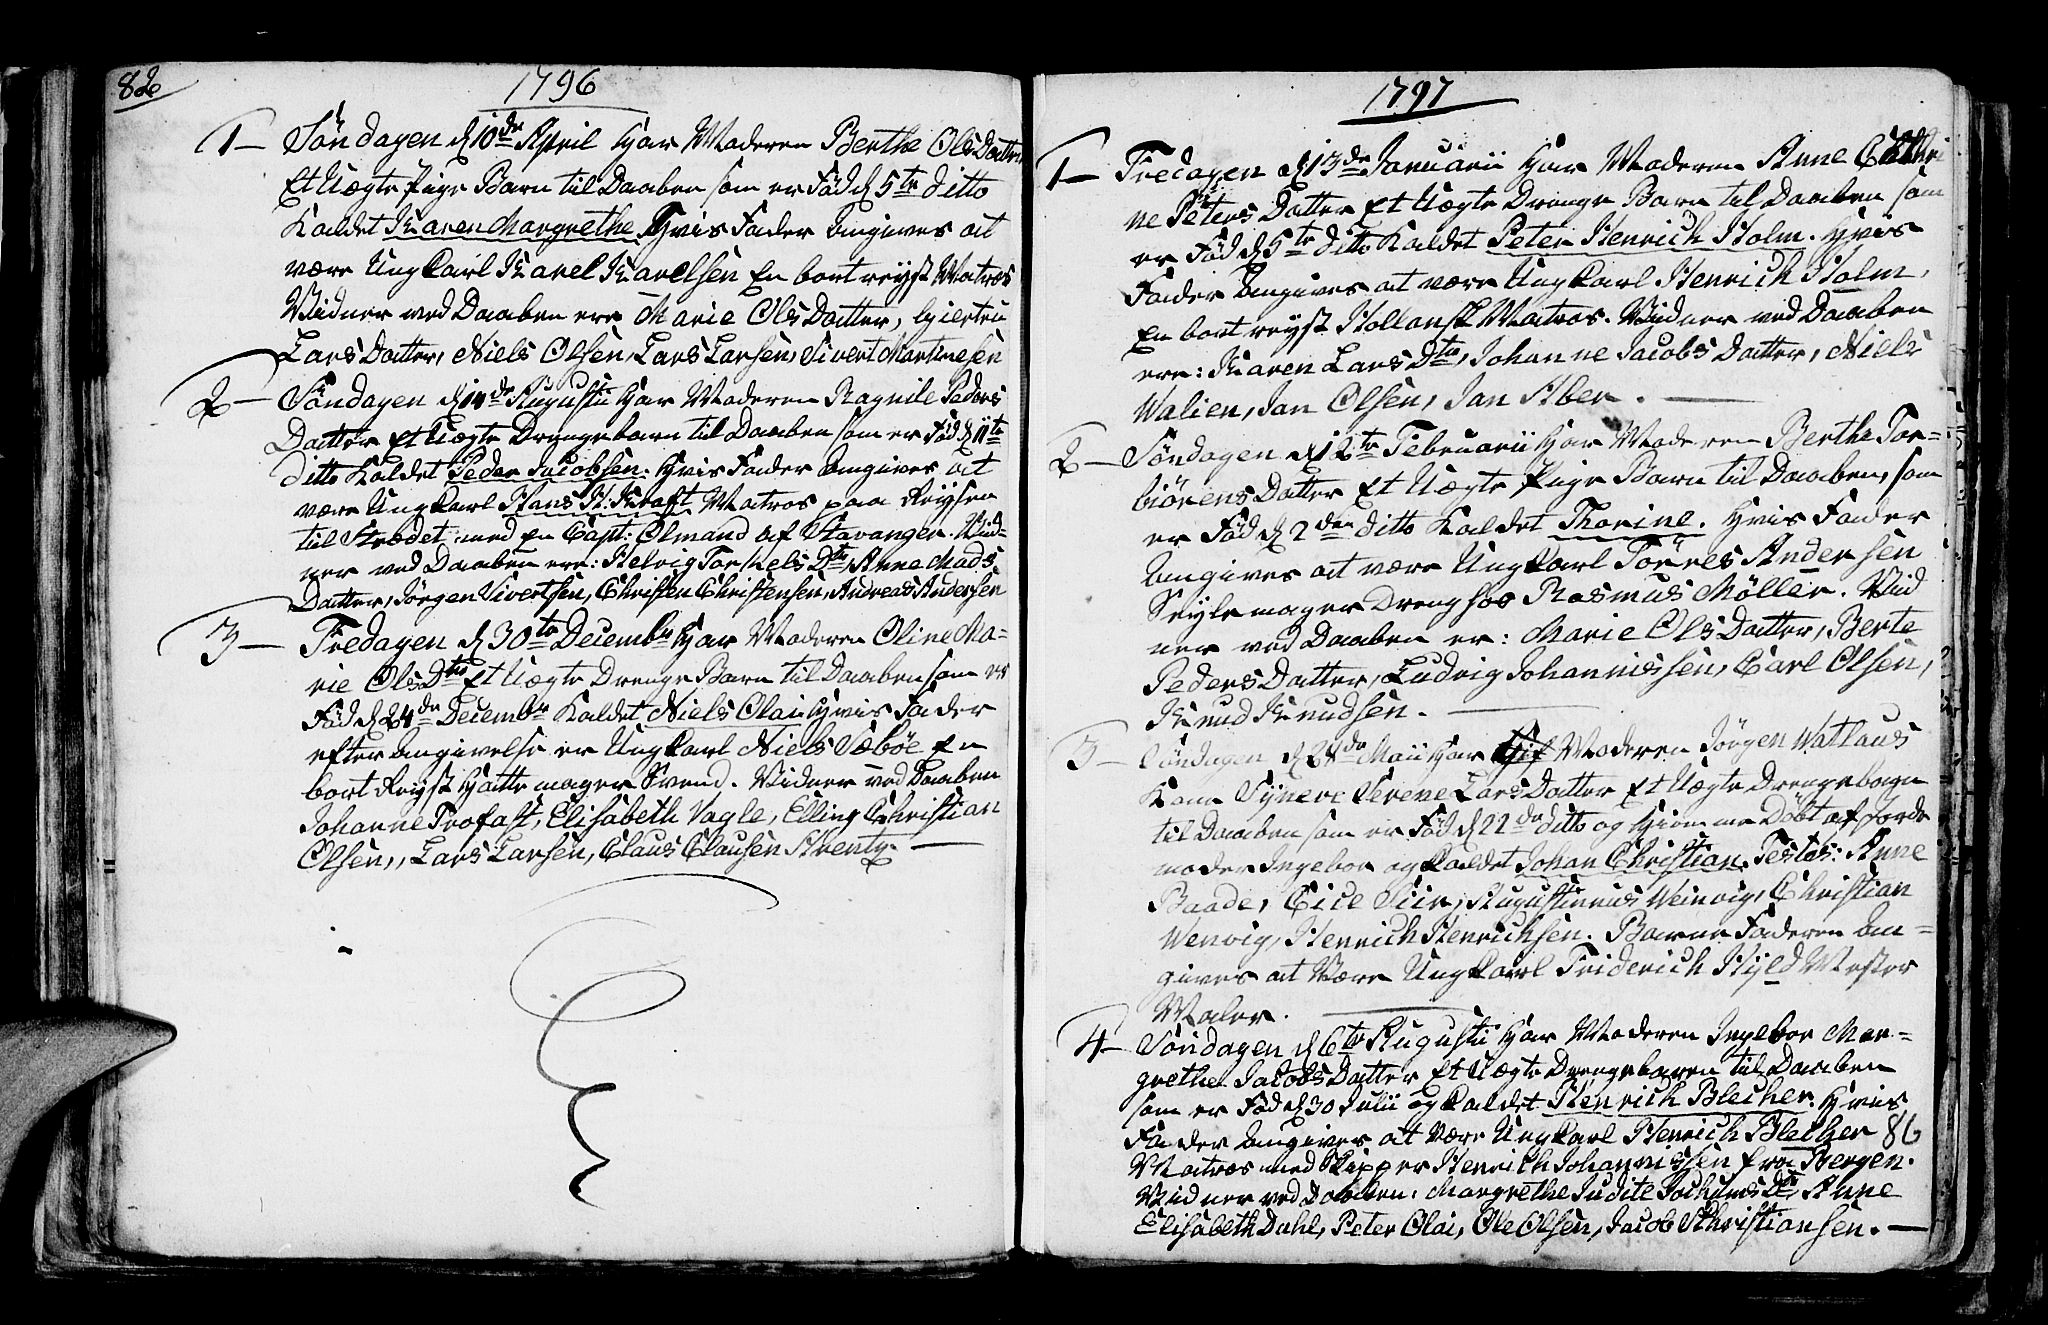 82
1796
1 — Söndagen d 10de April har Moderen Berthe Ols Datter
Et Uægte Pige Barn til Daaben som er Fød d 5te ditto
Kaldet Karen Margrethe Hvis Fader Angives at
være Ung Karl Karel Karelsen En bort reyst Matros
Vidner ved Daaben ere Marie Ols Datter, Giertru
Lars Datter, Niels Olsen, Lars Larsen, Sivert Martinesen
2 — Söndagen d 14de Augustii har Moderen Ragnile Peders
Datter Et Uægte Drengebarn til Daaben som er Fød d 11te
ditto Kaldet Peder Jacobsen. Hvis Fader Angives at
være Ung Karl Hans H. Kraft Matros paa Reysen
til Strædet med en Capt: Olmand af Stavanger. Vid-
ner ved Daaben ere: Helvig Torkels Dtr, Anne Mads
Datter, Jørgen Sivertsen, Christen Christensen, Andreas Andersen
3 — Fredagen d 30te Decembr har Moderen Oline Ma-
rie Ols Dtr Et Uægte Drenge Barn til Daaben som er
Fød d 24de Decembr Kaldet Niels Olai Hvis Fader
efter Angivelse er Ung Karl Niels Sæbøe En
bort Reyst Hatte mager Svend. Vidner ved Daaben
Johanne Trofast, Elisabeth Vagle, Elling Christian
Olsen, Lars Larsen, Claus Clausen Arentz. —
1797
1 — Fredagen d 13de Januarii har Moderen Anne Cathri
ne Peters Datter Et Uægte Drenge Barn til Daaben som
er Fød d 5te ditto Kaldet Peter Henrich Holm. Hvis
Fader Angives at være Ung Karl Henrich Holm,
En bort reyst Hollansk Matros. Vidner ved Daaben
ere: Karen Lars Dtr, Johanne Jacobs Datter, Niels
Walien, Jan Olsen, Jan Aben. —
2 — Söndagen d 12te Februarii har Moderen Berthe Tor-
biörens Datter Et Uægte Pige Barn til Daaben, som
er Fød d 2den ditto Kaldet Thorine. Hvis Fader
Angives at være Ung Karl Törres Andersen
Seyle mager Dreng hos Rasmus Møller. Vid
ner ved Daaben er: Marie Ols Datter, Berte
Peders Datter, Ludvig Johannessen, Carl Olsen,
Knud Knudsen. —
3 — Söndagen d 28de Maii har Moderen Jørgen Watlaus
Kone Syneve Serene Lars Datter Et Uægte Drengebarn
til Daaben som er Fød d 22de ditto og Hiemme Döbt af Jorde
moder Ingebor og kaldet Johan Christian. Testes: Anne
Baade, Cicel Siir, Augustinus Weinvig, Christian
Wenvig, Henrich Henrichsen. Barne Faderen An-
gives at være Ung Karl Friderich Hyld Mester
Maler. —
4 — Söndagen d 6te Augustii har Moderen Ingebor Mar-
grethe Jacobs Datter Et Uægte Drengebaren til Daaben
som er Fød d 30 Julii og kaldet Henrich Blecher. Hvis
Fader Angives at være Ung Karl Henrich Blecher 86
Matros med Skipper Henrich Johannessen fra Bergen.
Vidner ved Daaben: Margrethe Judite Jochums Dtr, Anne
Elisabeth Dahl, Peter Olai, Ole Olsen, Jacob Christiansen. —